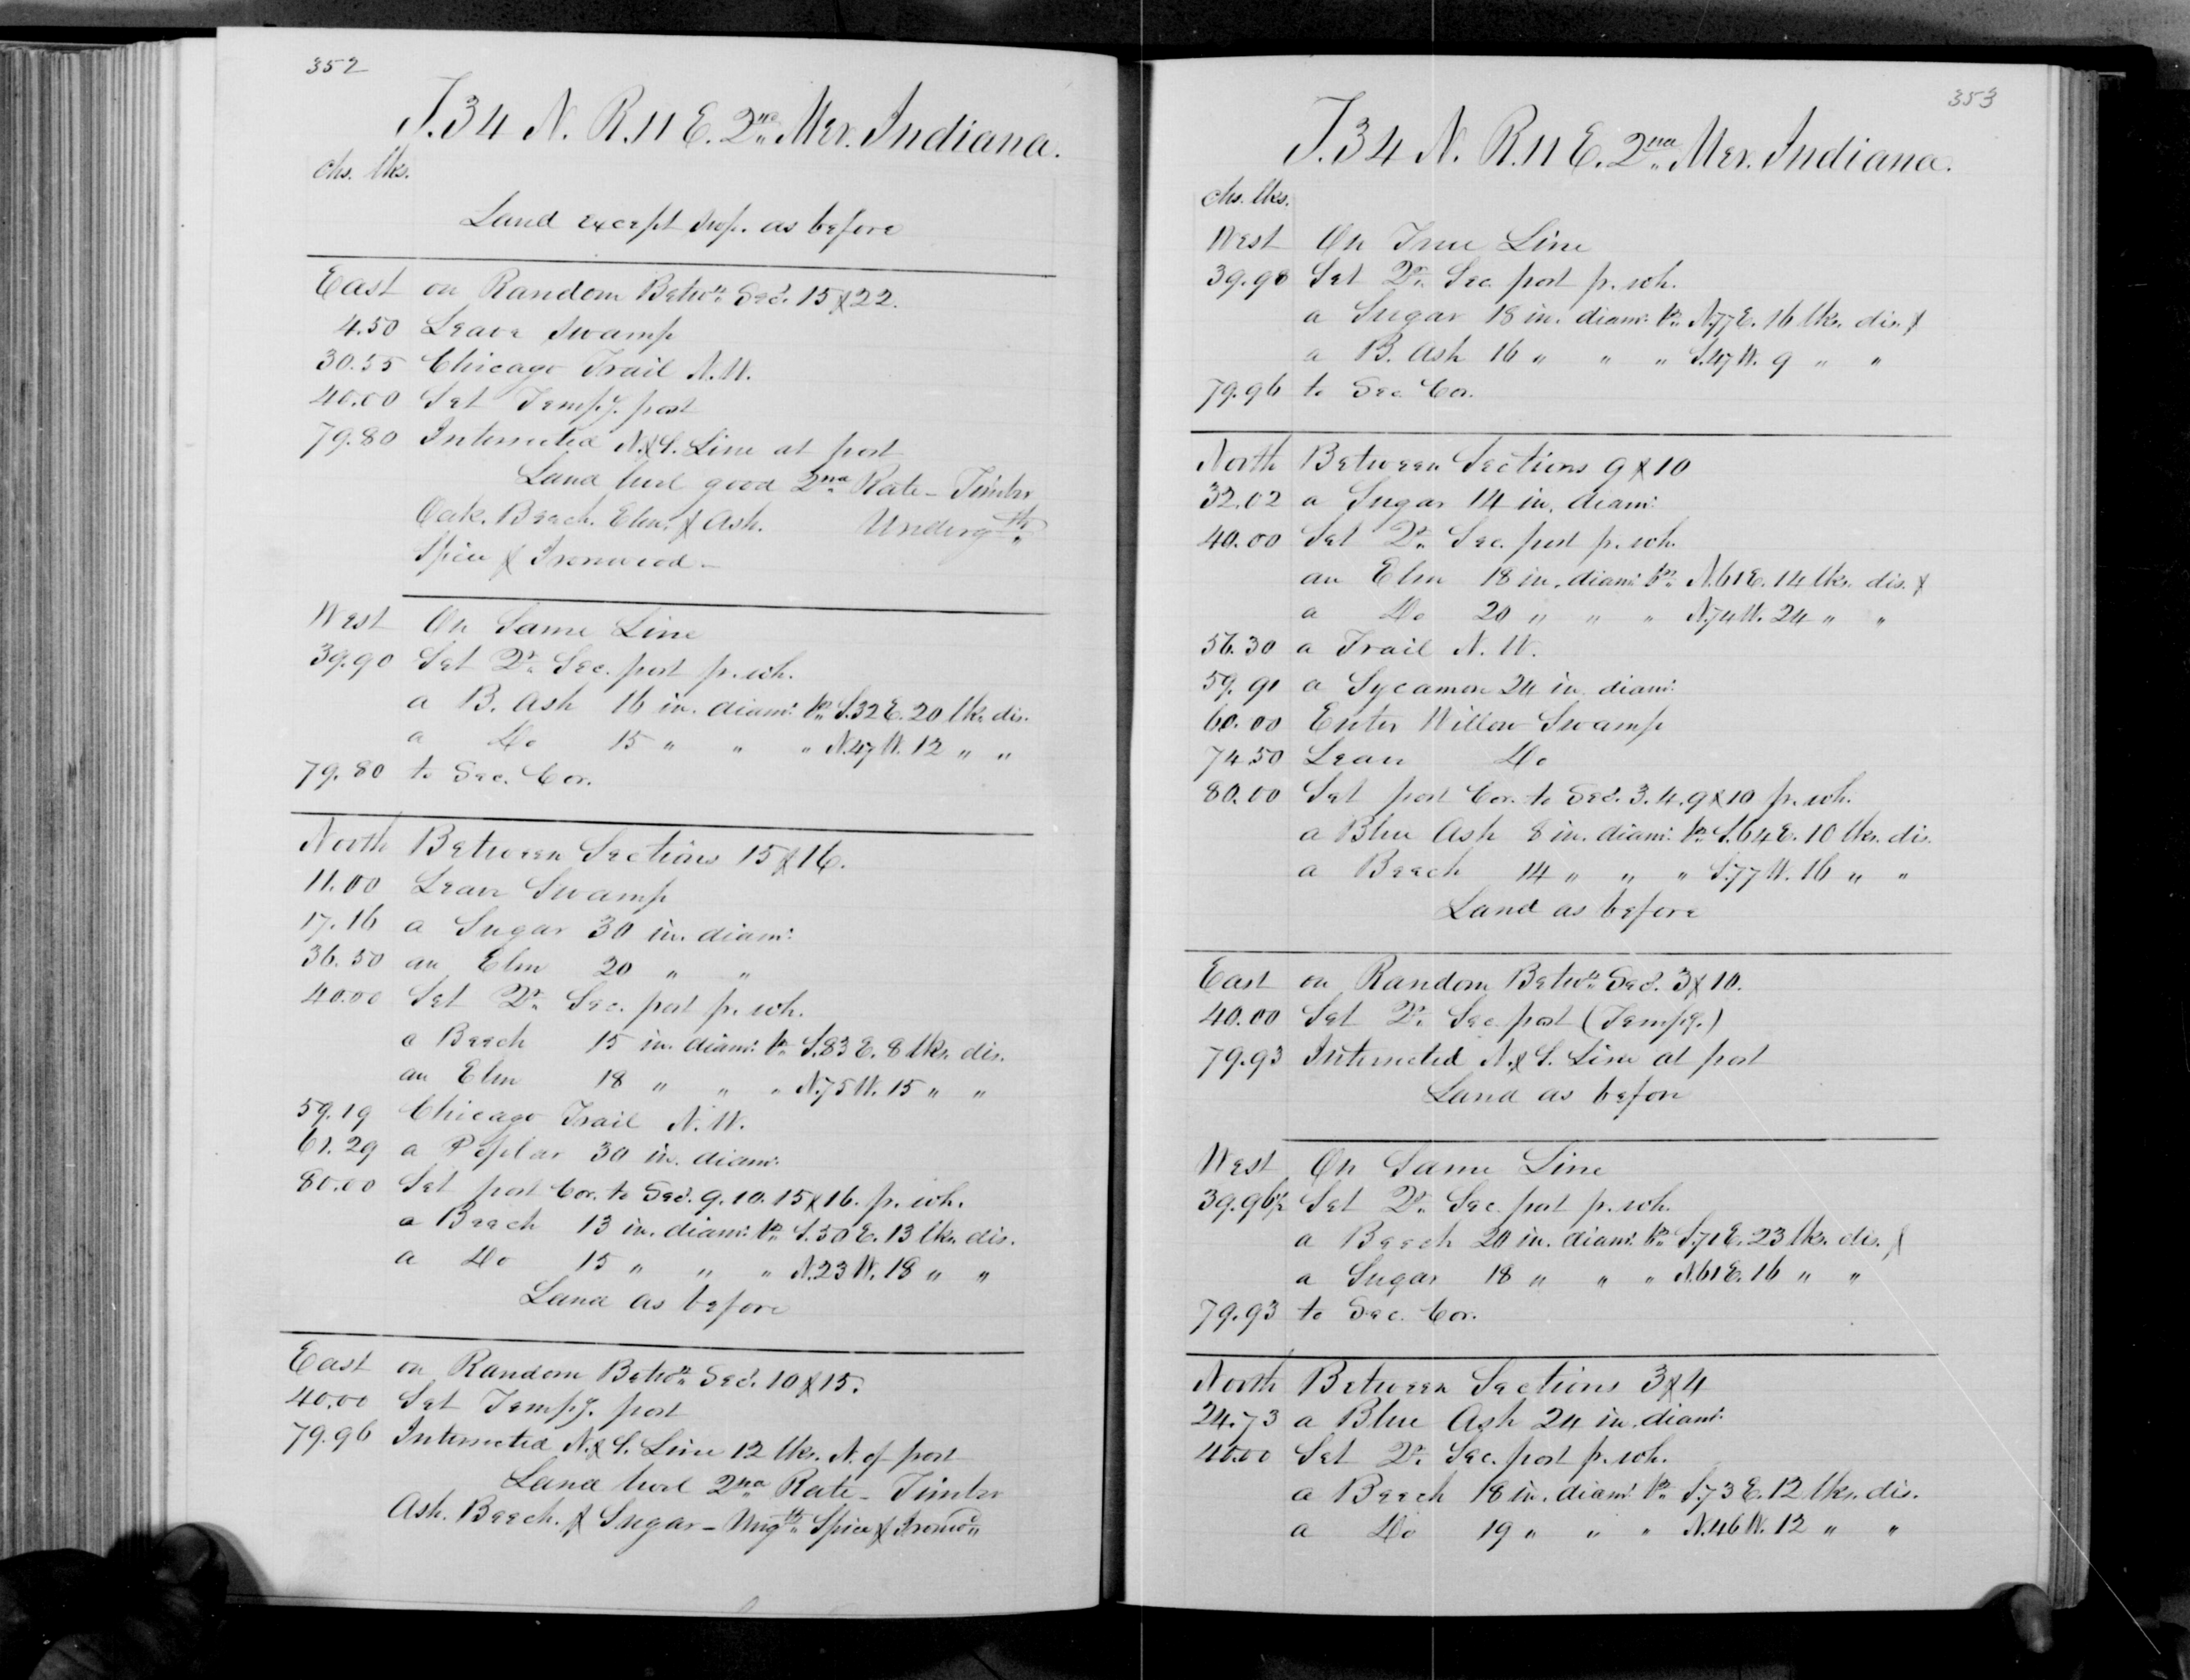 352
T.34 N. R.11 E. 2nd Mer. Indiana.
chs. lks.
Land except swp. as before
East on Random Betwn Secs. 15 & 22.
4.50 Leave Swamp
30.55 Chicago Trail N.W.
40.00 Set Tempy. post
79.80 Intersected N.&S. Line at post
Land level good 2nd Rate - Timber
Oak. Beech. Elm. & Ash. Undergth
Spice & Ironwood -
West On Same Line
39.90 Set Qr. Sec. post fr. wh.
a B. Ash 16 in. diamr. brs S.32 E. 20 lks. dis.
a Do 15 " " " N.47 W. 12 " "
79.80 to Sec. Cor.
North Between Sections 15 & 16.
11.00 Leave Swamp
17.16 a Sugar 30 in. diamr.
36.50 an Elm 20 " "
40.00 Set Qr. Sec. post fr. wh.
a Beech 15 in. diamr. br S.83 E. 8 lks. dis.
an Elm 18 " " " N.75 W. 15 " "
59.19 Chicago Trail N.W.
61.29 a Poplar 30 in. diamr.
80.00 Set post Cor. to Secs. 9. 10. 15 & 16. fr. wh.
a Beech 13 in. diamr. brs S.50 E. 13 lks. dis.
a Do 15 " " " N.23 W. 18 " "
Land as before
East on Random Betwn Secs. 10 & 15.
40.00 Set Tempy. post
79.96 Intersected N.&S. Line 12 lks. N. of post
Land level 2nd Rate - Timber
Ash. Beech. & Sugar - Ungth Spice & Ironwd
353
T.34 N. R.11 E. 2nd Mer. Indiana.
chs. lks.
West On True Line
39.98 Set Qr. Sec. post fr. wh.
a Sugar 18 in. diamr. brs N.77 E. 16 lks. dis. &
a B. Ash 16 " " " S.47 W. 9 " "
79.96 to Sec. Cor.
North Between Sections 9 & 10
32.02 a Sugar 14 in. diamr.
40.00 Set Qr. Sec. post fr. wh.
an Elm 18 in. diamr. brs N.61 E. 14 lks. dis. &
a Do 20 " " " N.74 W. 24 " "
56.30 a Trail N.W.
59.91 a Sycamore 24 in. diamr.
60.00 Enter Willow Swamp
74.50 Leave Do
80.00 Set post Cor. to Secs. 3. 4. 9 & 10 fr. wh.
a Blue Ash 8 in. diamr. brs S.64 E. 10 lks. dis.
a Beech 14 " " " S.77 W. 16 " "
Land as before
East on Random Betwn Secs. 3 & 10.
40.00 Set Qr. Sec. post (Tempy.)
79.93 Intersected N.&S. Line at post
Land as before
West On Same Line
39.96½ Set Qr. Sec. post fr. wh.
a Beech 20 in. diamr. brs S.71 E. 23 lks. dis. &
a Sugar 18 " " " N.61 E. 16 " "
79.93 to Sec. Cor.
North Between Sections 3 & 4
24.73 a Blue Ash 24 in. diamr.
40.00 Set Qr. Sec. post fr. wh.
a Beech 18 in. diamr. brs S.73 E. 12 lks. dis.
a Do 19 " " " N.46 W. 12 " "